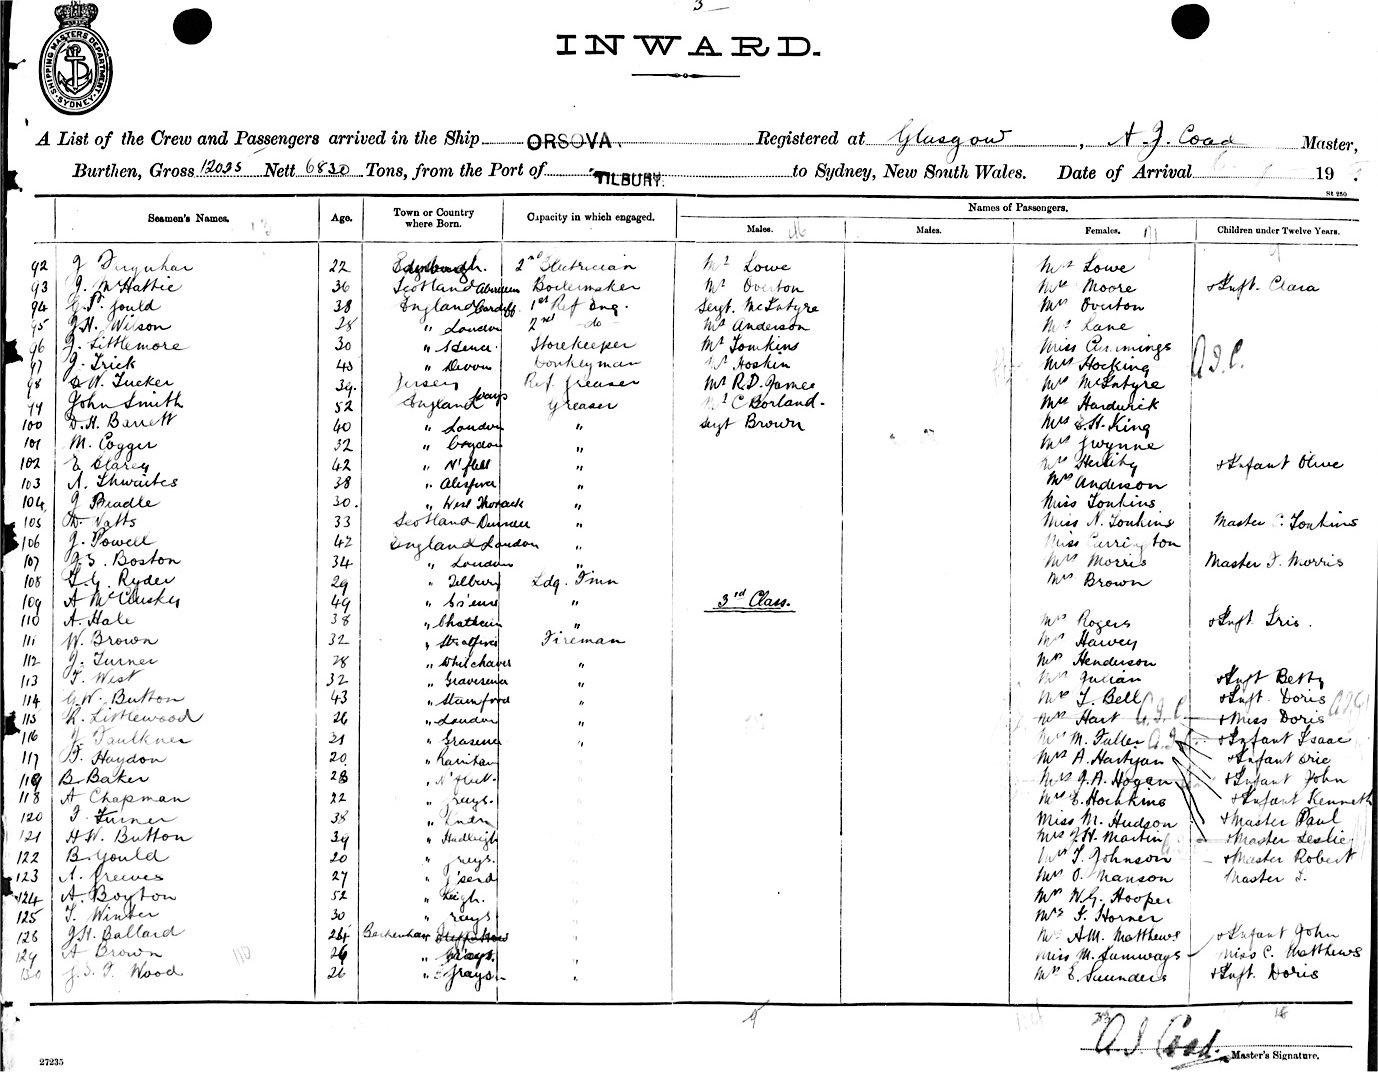 3
SHIPPING MASTERS DEPARTMENT SYDNEY
INWARD.
A List of the Crew and Passengers arrived in the Ship ORSOVA. Registered at Glasgow, A. J. Coad Master,
Burthen, Gross 12035 Nett 6830 Tons, from the Port of TILBURY. to Sydney, New South Wales. Date of Arrival 19
St 250
Names of Passengers.
Seamen's Names. Age. Town or Country where Born. Capacity in which engaged. Males. Males. Females. Children under Twelve Years.
92 J Farquhar 22 Edinburgh. 2nd Electrician Mr Lowe Mrs Lowe
93 J. McHattie 36 Scotland Aberdeen Boilermaker Mr Overton Mrs Moore & Inft. Clara
94 G.P. Gould 38 England Cardiff 1st Ref Eng. Sergt. McIntyre Mrs Overton
95 J.H. Wilson 28 " London 2nd do Mr Anderson Mrs Lane
96 J. Littlemore 30 " Storekeeper Mr Tomkins Miss Cummings
97 J. Trick 43 " Devon Donkeyman Mr Hoskin Mrs Hocking A.I.C.
98 W. Tucker 39 Jersey Ref. Greaser Mr R.D. James Mrs McIntyre
99 John Smith 52 England Grays Greaser Mr C Borland. Mrs Hardwick
100 D.H. Barrett 40 " London " Sergt Brown Mrs E.H. King
101 M. Cogger 32 " Croydon " Mrs Gwynne
102 E Clarey 42 " N'fleet " Mrs & Infant Olive
103 A. Thwaites 38 " " Mrs Anderson
104 J Beadle 30. " West Thorrock " Miss Tonkins
105 Watts 33 Scotland Dundee " Miss N. Tonkins Master C. Tonkins
106 J. Powell 42 England London " Miss Currington
107 J.S. Boston 34 " London " Mrs Morris Master F. Morris
108 F.G. Ryder 29 " Tilbury Ldg. Fmn Mrs Brown
109 A McClusky 49 " G's'end " 3rd Class.
110 A. Hale 38 " Chatham " Mrs Rogers & Inft Iris.
111 W. Brown 32 " Stratford Fireman Mrs Harvey
112 J. Turner 28 " Whitehaven " Mrs Henderson
113 F. West 32 " Gravesend " Mrs Julian & Inft Betty
114 G.W. Button 43 " Stamford " Mrs T. Bell & Inft. Doris
115 R. Littlewood 26 " London " Mrs Hart A.I.C. & Miss Doris
116 J Faulkner 21 " Gravesend " Mrs M. Fuller & Infant Isaac
117 F. Haydon 20 " Rainham Mrs A. Hartjan & Infant Eric
119 B Baker 28 " N'fleet. Mrs J.A. Hogan & Infant John
118 A Chapman 22 " Grays. Mrs E. Hockins & Infant Kenneth
120 F. Turner 38 " London Miss M. Hudson & Master Paul
121 H.W. Button 39 " Hadleigh Mrs J.H. Martin & Master Leslie
122 B. Gould 20 " Grays. Mrs T. Johnson & Master Robert
123 A. Greeves 27 " G'send Mrs O. Manson Master
124 A. Boyton 52 " Leigh. Mrs W.G. Hooper
125 T. Winter 30 " Grays Mrs F. Horner
126 J.H. Ballard 24 Beckenham Mrs A.M. Matthews & Infant John
129 A Brown 26 " Grays. Miss M. Lumways Miss C. Matthews
130 J.S.F. Wood 26 " Grays Mrs E. Saunders & Inft. Doris
A. J. Coad. Master's Signature.
27235